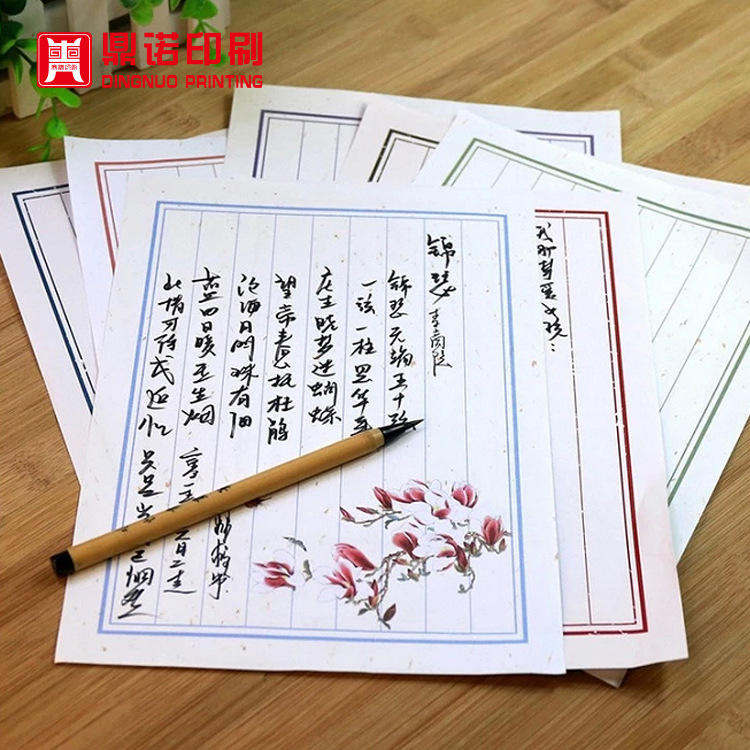 鼎诺印刷
DINGNUO PRINTING
锦瑟 李商隐
锦瑟无端五十弦
一弦一柱思华年
庄生晓梦迷蝴蝶
望帝春心托杜鹃
沧海月明珠有泪
蓝田日暖玉生烟
此情可待成追忆 只是当已惘然